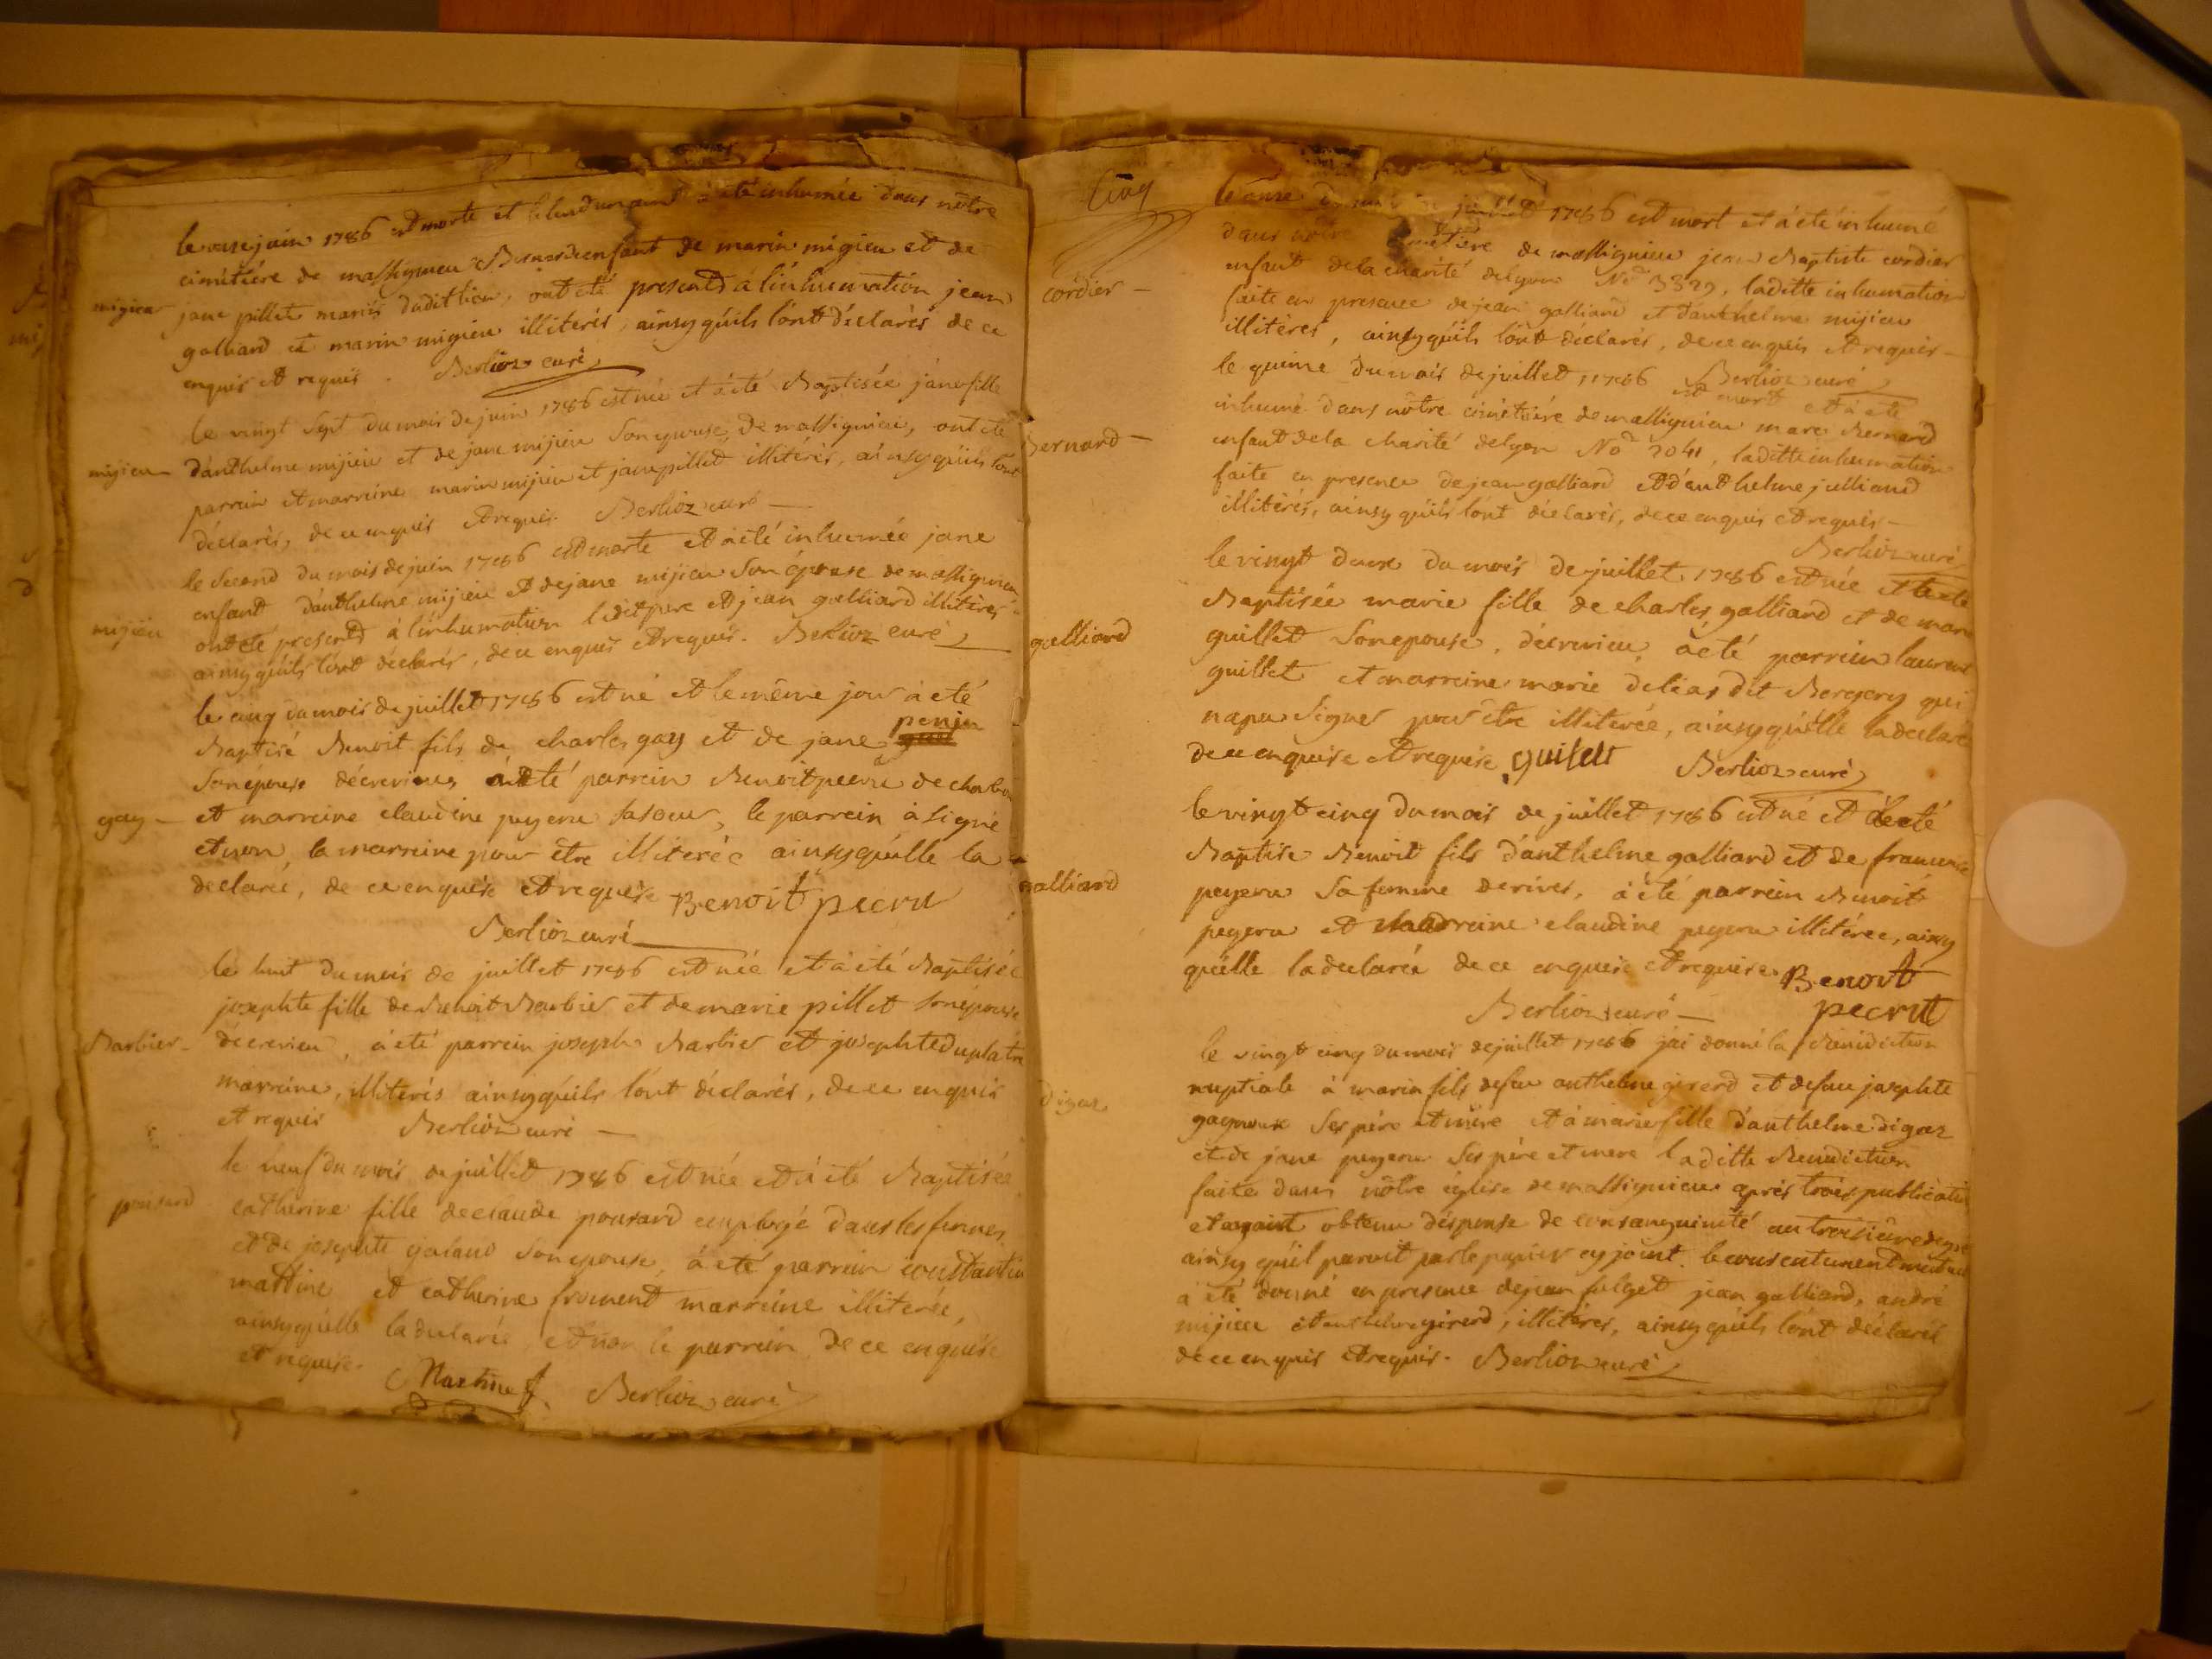 le onze juin 1786 est morte et le lendemain à été inhumée dans nôtre
cimétiére de massignieu Bernarde enfant de marin migieu et de
migieu
jane pillet mariés dudit lieu, ont été presents á l'inhumation jean
galliard et marin migieu illiterés, ainsy qúils lónt déclarés de ce
enquis et requis. Berlioz curé
le vingt sept du mois de juin 1786 est née et á été Baptisée jáne fille
migieu
dánthelme mijieu et de jane mijieu son epouse, de massignieu, ont été
parrein et marreine marin mijieu et jane pillet illitérés, ainsy qúils lónt
déclarés, de ce enquis et requis Berlioz curé
le second du mois de juin 1786 est morte et à été inhumée jane
enfant dánthelme mijieu et de jane mijieu son épouse de massignieu
mijieu
ont été presents á línhumation ledit pere et jean galliard illitéres
ainsy qúils lónt déclarés, de ce enquis et requis. Berlioz curé
le cinq du mois de juillet 1786 est né et le même jour à eté
Baptisé Benoit fils de charles gay et de jane
son épouse décrevieu, á été parrein Benoit
gay
et marreine claudine sa sœur, le parrein à signé
et non la marreine pour être illiterée ainsy qúelle la
declaréé, de ce enquise et requise Benoit pecru
Berlioz curé
le huit du mois de juillet 1786 est née et à été Baptisée
josephte fille de Benoit Barbier et de marie pillet son épouse
Barbier
décrevieu, à été parrein joseph Barbier et josephte duplatre
marreine, illiterés ainsy qúils lónt déclarés, de ce enquis
et requis Berlioz curé
le neuf du mois de juillet 1786 est née et à été Baptisée
ponsard
catherine fille de claude ponsard employé dans les fermes
et de josephte galand son epouse, à été parrein constantin
martine et catherine froment marreine illiterée,
ainsy qúelle la declarée et non le parrein de ce enquise
et requise. Martine f. Berlioz curé
Cinq
le onze du mois de juillet 1786 est mort et á été inhumé
dans nôtre cimétiére de massignieu jean Baptiste cordier
cordier
enfant de la charité de lyon No 3329, laditte inhumation
faite en presence de jean galliard et dánthelme mijieu
illitèrés, ainsy qúils lónt déclarés, de ce enquis et requis
Berlioz curé
le quinze du mois de juillet 1786 est mort et à été
inhumé dans nôtre cimétiére de massignieu marc Bernard
Bernard
enfant de la charité de lyon No , laditte inhumation
faite en presence de jean galliard et dánthelme julliand
illitérés, ainsy qúils lónt déclarés, de ce enquis et requis
Berlioz curé
le vingt deux du mois de juillet 1786 est née et à été
Baptisée marie fille de charles galliard et de marie
galliard
guillet son epouse, décrevieu, à été parrein laurent
guillet et marreine marie delias dit Bergery qui
na pu signer pour être illiterée, ainsy qúelle la declaré
de ce enquise et requise guilelt Berlioz curé
le vingt cinq du mois de juillet 1786 est né et à été
Baptisé Benoit fils dánthelme galliard et de francoise
galliard
sa femme de rives, à été parrein Benoit
et marreine claudine illitérée, ainsy
qúelle la declaréé de ce enquise et requise. Benoit
pecrut
Berlioz curé
le vingt cinq du mois de juillet 1786 j'ai donné la Bénédiction
nuptiale à marin fils de feu anthelme girerd et de feue josephte
digoz
ses pére et mére et à marie fille dánthelme digoz
et de jane ses pére et mere laditte Benediction
faite dans nôtre église de massignieu aprés trois publication
et ayant obtenu dispense de consanguinité au troisiéme degré
ainsy qúil paroit par le papier cy joint. le consentement mutuel
à été donné en presence de jean jean galliard, andré
mijieu et anthelme girerd, illitéres, ainsy qúils lónt déclarés
de ce enquis et requis. Berlioz curé